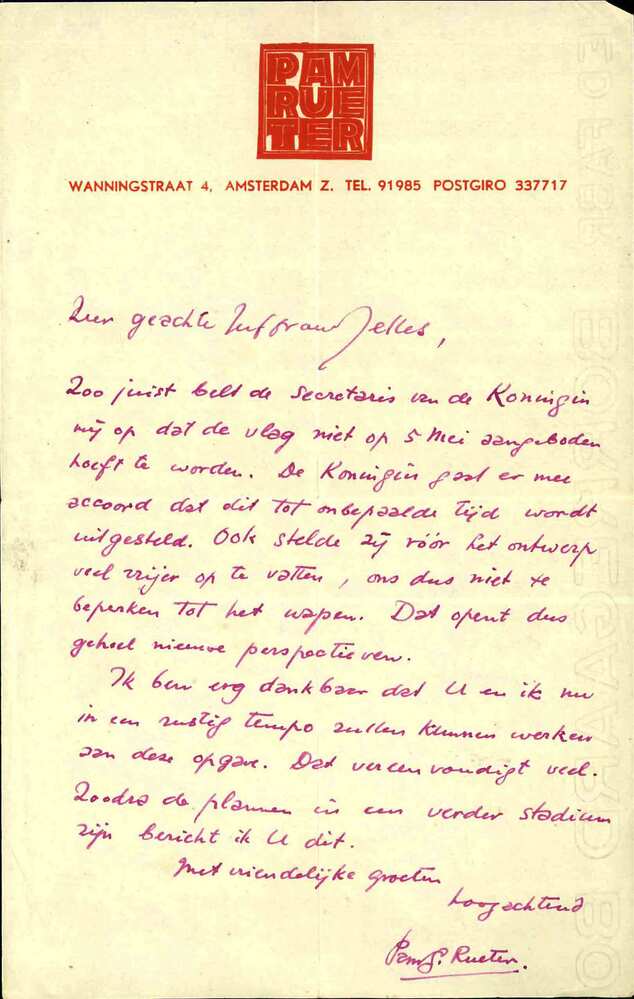 PAM
RUE
TER
WANNINGSTRAAT 4, AMSTERDAM Z. TEL. 91985 POSTGIRO 337717
Zeer geachte Juffrouw Jelles,
Zoo juist belt de secretaris van de Koningin
mij op dat de vlag niet op 5 Mei aangeboden
hoeft te worden. De Koningin gaat er mee
accoord dat dit tot onbepaalde tijd wordt
uitgesteld. Ook stelde zij vóór het ontwerp
veel vrijer op te vatten, ons dus niet te
beperken tot het wapen. Dat opent dus
geheel nieuwe perspectieven.
Ik ben erg dankbaar dat U en ik nu
in een rustig tempo zullen kunnen werken
aan deze opgave. Dat vereenvoudigt veel.
Zoodra de plannen in een verder stadium
zijn bericht ik U dit.
Met vriendelijke groeten
hoogachtend
Pam G. Rueter.